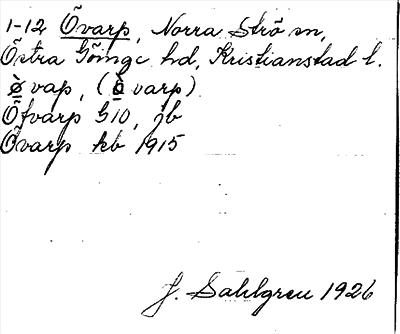 1-12 Övarp, Norra Strö sn,
Östra Göinge hd, Kristianstad l.
ø̀ vap, (ò varp)
Öfvarp 510, jb
Övarp kb 1915
J. Sahlgren 1926